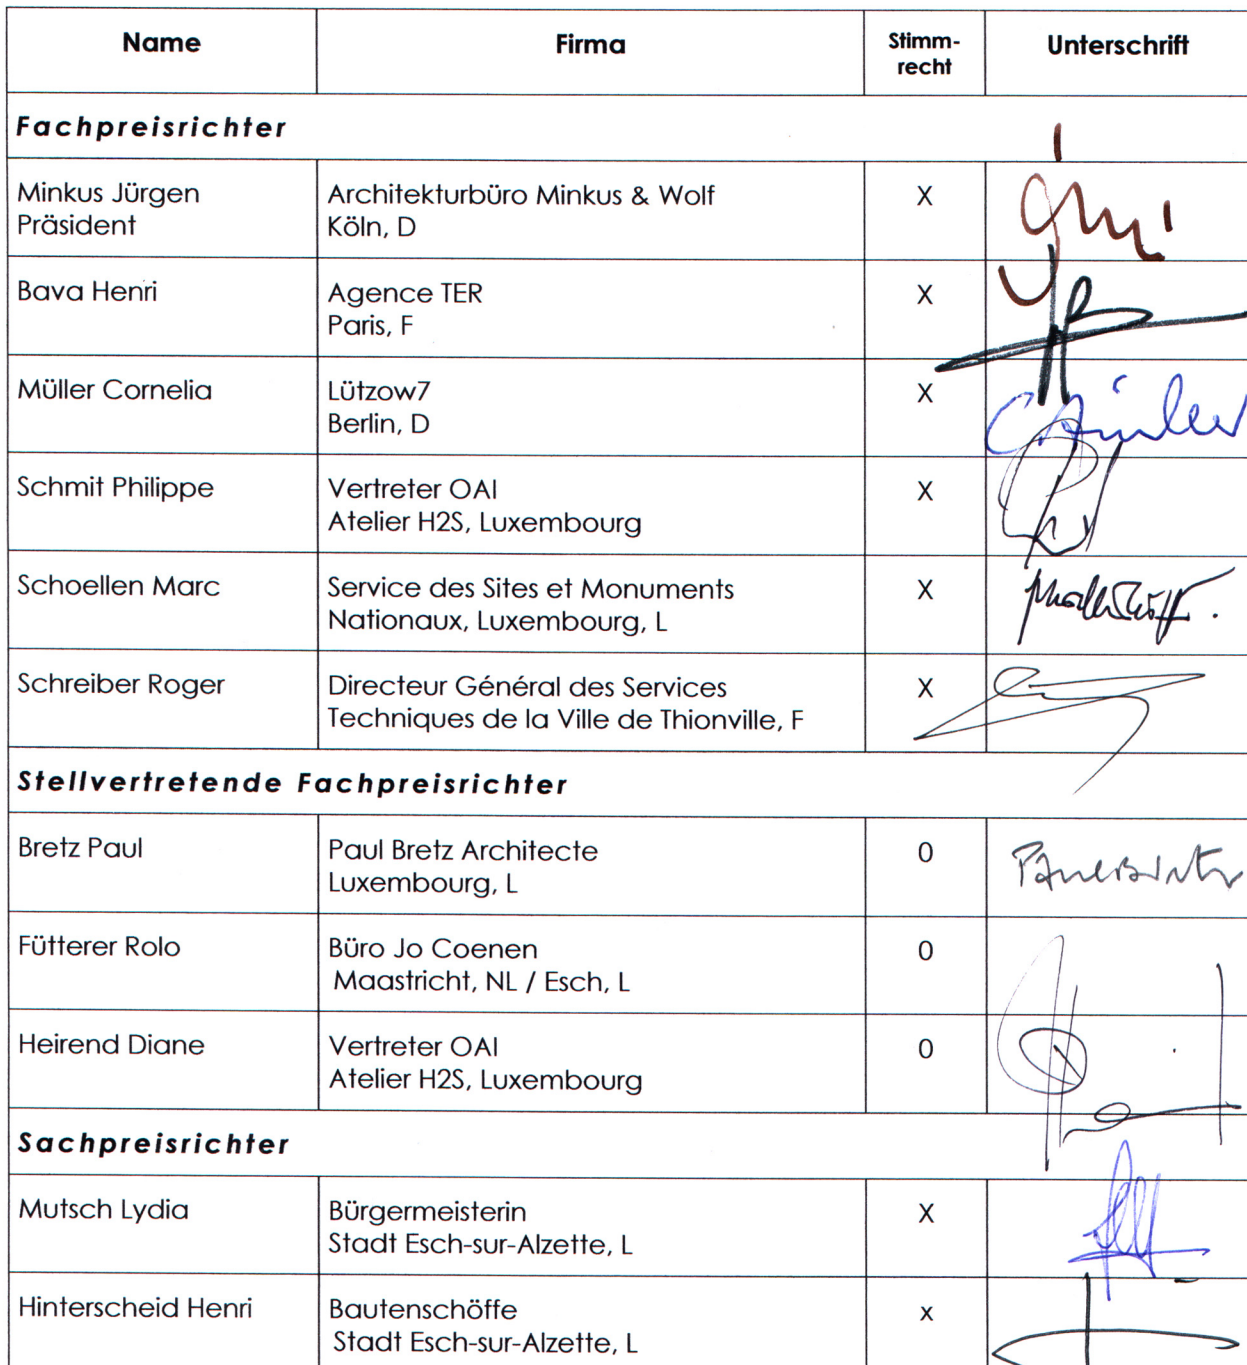 Name Firma Stimm- Unterschrift
recht
Fachpreisrichter
Minkus Jürgen Architekturbüro Minkus & Wolf X
Präsident Köln, D
Bava Henri Agence TER X
Paris, F
Müller Cornelia Lützow7 X
Berlin, D
Schmit Philippe Vertreter OAI X
Atelier H2S, Luxembourg
Schoellen Marc Service des Sites et Monuments X
Nationaux, Luxembourg, L
Schreiber Roger Directeur Général des Services X
Techniques de la Ville de Thionville, F
Stellvertretende Fachpreisrichter
Bretz Paul Paul Bretz Architecte 0
Luxembourg, L
Fütterer Rolo Büro Jo Coenen 0
Maastricht, NL / Esch, L
Heirend Diane Vertreter OAI 0
Atelier H2S, Luxembourg
Sachpreisrichter
Mutsch Lydia Bürgermeisterin X
Stadt Esch-sur-Alzette, L
Hinterscheid Henri Bautenschöffe x
Stadt Esch-sur-Alzette, L